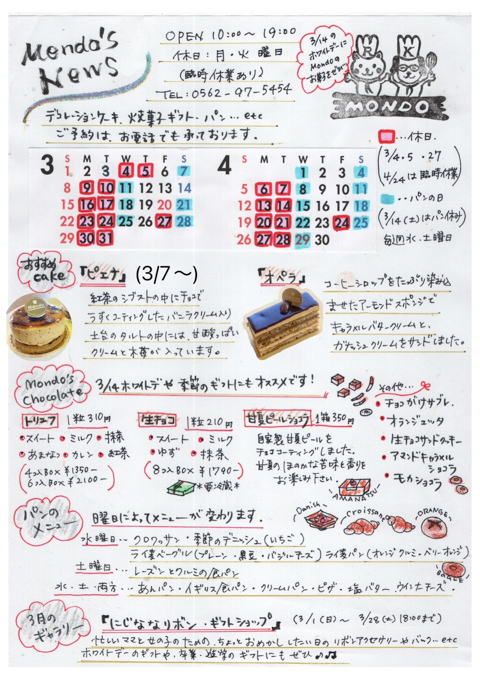 Mondo's News
OPEN 10:00〜19:00
休日：月・火 曜日
(臨時休業あり)
TEL：0562-97-5454
3/14の
ホワイトデーに
MONDOの
お菓子をぜひ
R K
MONDO
デコレーションケーキ、焼菓子ギフト、パン…etc
ご予約は、お電話でも承っております。
3 S M T W T F S
1 2 3 4 5 6 7
8 9 10 11 12 13 14
15 16 17 18 19 20 21
22 23 24 25 26 27 28
29 30 31
4 S M T W T F S
1 2 3 4
5 6 7 8 9 10 11
12 13 14 15 16 17 18
19 20 21 22 23 24 25
26 27 28 29 30
…休日
(3/4・5・27
4/24は臨時休業)
…パンの日
(3/14(土)はパン休み)
毎週水・土曜日
おすすめ
cake
『ピエナ』(3/7〜)
紅茶のシブストの中にチョコで
うすくコーティングしたバニラクリーム入り
土台のタルトの中には、甘酸っぱい
クリームと木苺が入っています。
『オペラ』
コーヒーシロップをたっぷり染み込
ませたアーモンドスポンジで
キャラメルバタークリームと、
ガナッシュクリームをサンドしました。
Mondo's
Chocolate
3/14ホワイトデーや季節のギフトにもオススメです！
トリュフ 1粒310円
・スイート・ミルク・抹茶
・あまなつ・カレン・紅茶
(4コ入Box ¥1350-
6コ入Box ¥2100-)
生チョコ 1粒210円
・スイート・ミルク
・ゆず・抹茶
(8コ入Box ¥1790-)
*要冷蔵*
甘夏ピールショコラ 1箱350円
自家製甘夏ピールを
チョココーティングしました。
甘夏のほのかな苦味と香りを
お楽しみ下さい。
AMANATSU
その他…
・チョコがけサブレ、
・オランジェッタ
・生チョコサンドクッキー
・アマンドキャラメル
ショコラ
・モカショコラ
パンの
メニュー
曜日によってメニューが変わります。
Danish
Croissant
ORANGE
水曜日…クロワッサン・季節のデニッシュ(いちご)
ライ麦ベーグル(プレーン・黒豆・バジルチーズ) ライ麦パン(オレンジクルミ・ベリーオレンジ)
土曜日…レーズンとクルミの食パン
水・土・両方…あんパン・イギリス食パン・クリームパン・ピザ・塩バター・ウインナチーズ・
3月の
ギャラリー
『にじなな リボン・ギフトショップ』 (3/1(日)〜3/28(土)18:00まで)
忙しいママと女の子のための、ちょっとおめかししたい日のリボンアクセサリーやバック…etc
ホワイトデーのギフトや、卒業・進学のギフトにもぜひ♪♫